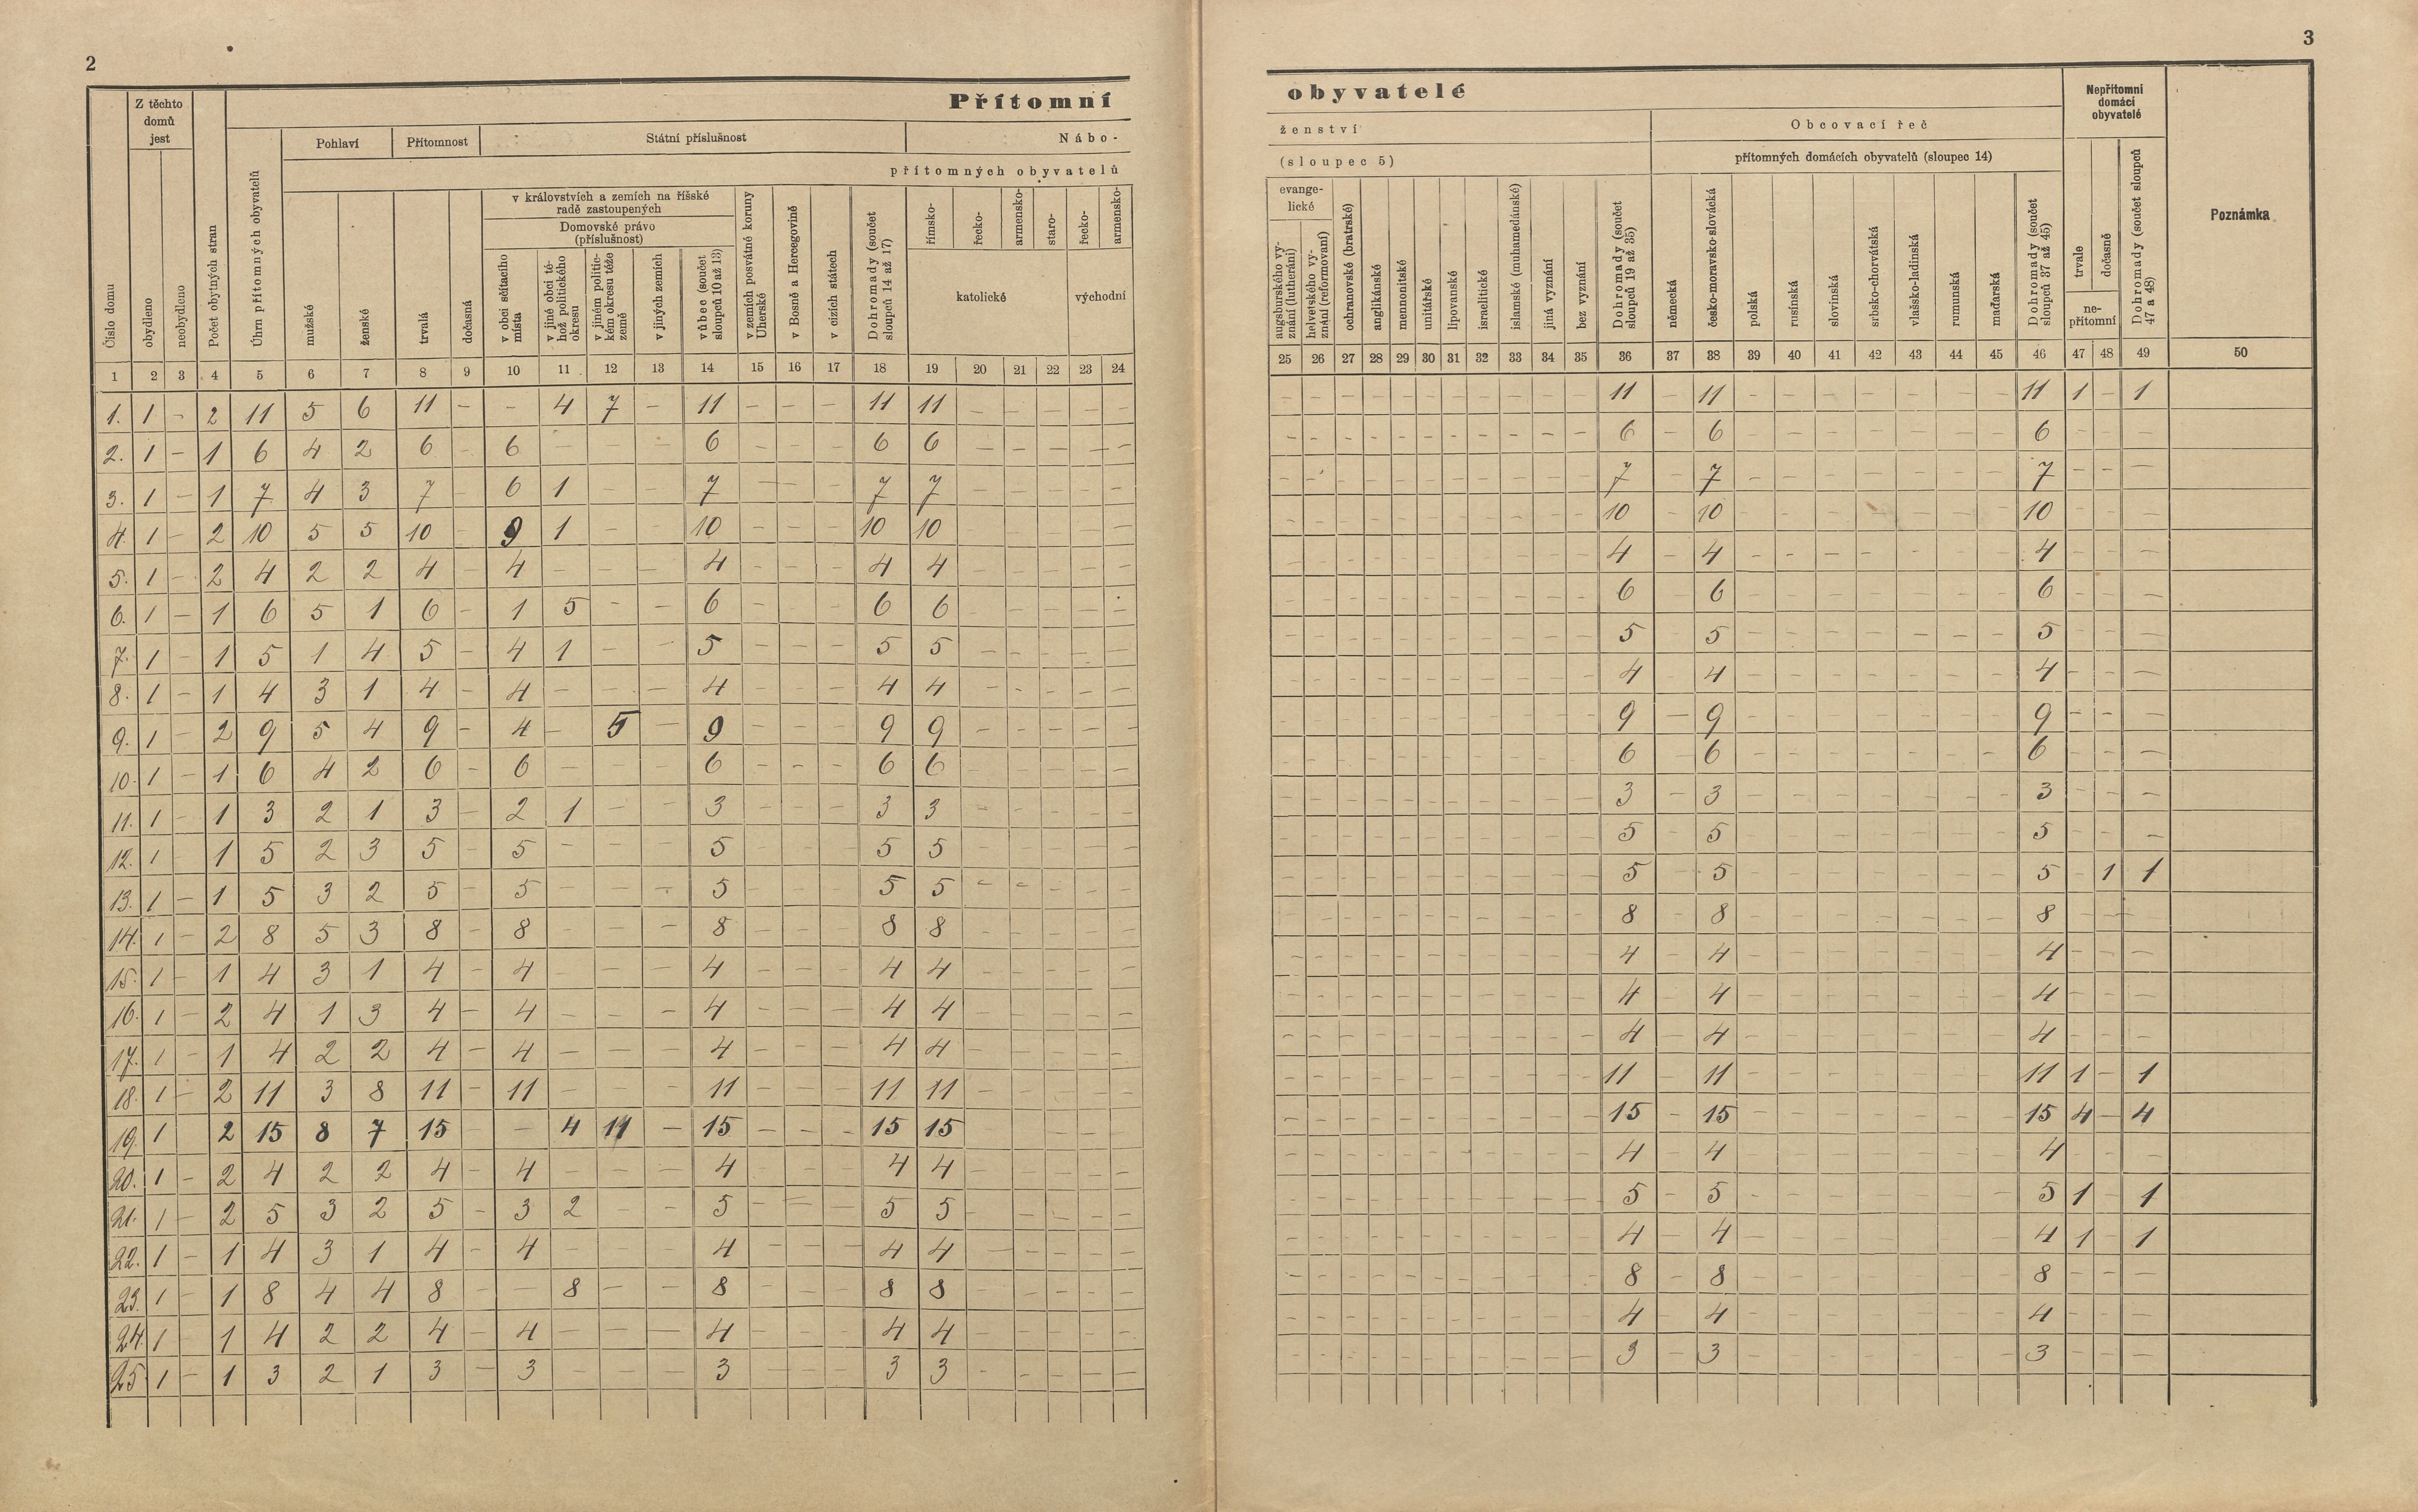 2
3
Přítomní
obyvatelé
Číslo domu
Z těchto
domů
jest
obydleno
neobydleno
Počet obytných stran
Úhrn přítomných obyvatelů
Pohlaví
Přítomnost
Státní příslušnost
Nábo-
ženství
přítomných obyvatelů
(sloupec 5)
mužské
ženské
trvalá
dočasná
v královstvích a zemích na říšské
radě zastoupených
Domovské právo
(příslušnost)
v obci sčítacího
místa
v jiné obci té-
hož politického
okresu
v jiném politic-
kém okresu téže
země
v jiných zemích
vůbec (součet
sloupců 10 až 13)
v zemích posvátné koruny
Uherské
v Bosně a Hercegovině
v cizích státech
Dohromady (součet
sloupců 14 až 17)
římsko-
řecko-
armensko-
staro-
řecko-
armensko-
katolické
východní
evange-
lické
augsburského vy-
znání (lutheráni)
helvetského vy-
znání (reformovaní)
ochranovské (bratrské)
anglikánské
mennonitské
unitářské
lipovanské
israelitické
islamské (muhamedánské)
jiná vyznání
bez vyznání
Dohromady (součet
sloupců 19 až 35)
Obcovací řeč
přítomných domácích obyvatelů (sloupec 14)
německá
česko-moravsko-slovácká
polská
rusínská
slovinská
srbsko-chorvátská
vlašsko-ladinská
rumunská
maďarská
Dohromady (součet
sloupců 37 až 45)
Nepřítomní
domácí
obyvatelé
trvale
dočasně
ne-
přítomní
Dohromady (součet sloupců
47 a 48)
Poznámka
1 2 3 4 5 6 7 8 9 10 11 12 13 14 15 16 17 18 19 20 21 22 23 24 25 26 27 28 29 30 31 32 33 34 35 36 37 38 39 40 41 42 43 44 45 46 47 48 49 50
1. 1 - 2 11 5 6 11 - - 4 7 - 11 - - - 11 11 - - - - - - - - - - - - - - - - 11 - 11 - - - - - - - 11 1 - 1
2. 1 - 1 6 4 2 6 - 6 - - - 6 - - - 6 6 - - - - - - - - - - - - - - - - 6 - 6 - - - - - - - 6 - - -
3. 1 - 1 7 4 3 7 - 6 1 - - 7 - - - 7 7 - - - - - - - - - - - - - - - - 7 - 7 - - - - - - - 7 - - -
4. 1 - 2 10 5 5 10 - 9 1 - - 10 - - - 10 10 - - - - - - - - - - - - - - - - 10 - 10 - - - - - - - 10 - - -
5. 1 - 2 4 2 2 4 - 4 - - - 4 - - - 4 4 - - - - - - - - - - - - - - - - 4 - 4 - - - - - - - 4 - - -
6. 1 - 1 6 5 1 6 - 1 5 - - 6 - - - 6 6 - - - - - - - - - - - - - - - - 6 - 6 - - - - - - - 6 - - -
7. 1 - 1 5 1 4 5 - 4 1 - - 5 - - - 5 5 - - - - - - - - - - - - - - - - 5 - 5 - - - - - - - 5 - - -
8. 1 - 1 4 3 1 4 - 4 - - - 4 - - - 4 4 - - - - - - - - - - - - - - - - 4 - 4 - - - - - - - 4 - - -
9. 1 - 2 9 5 4 9 - 4 - 5 - 9 - - - 9 9 - - - - - - - - - - - - - - - - 9 - 9 - - - - - - - 9 - - -
10. 1 - 1 6 4 2 6 - 6 - - - 6 - - - 6 6 - - - - - - - - - - - - - - - - 6 - 6 - - - - - - - 6 - - -
11. 1 - 1 3 2 1 3 - 2 1 - - 3 - - - 3 3 - - - - - - - - - - - - - - - - 3 - 3 - - - - - - - 3 - - -
12. 1 - 1 5 2 3 5 - 5 - - - 5 - - - 5 5 - - - - - - - - - - - - - - - - 5 - 5 - - - - - - - 5 - - -
13. 1 - 1 5 3 2 5 - 5 - - - 5 - - - 5 5 - - - - - - - - - - - - - - - - 5 - 5 - - - - - - - 5 - 1 1
14. 1 - 2 8 5 3 8 - 8 - - - 8 - - - 8 8 - - - - - - - - - - - - - - - - 8 - 8 - - - - - - - 8 - - -
15. 1 - 1 4 3 1 4 - 4 - - - 4 - - - 4 4 - - - - - - - - - - - - - - - - 4 - 4 - - - - - - - 4 - - -
16. 1 - 2 4 1 3 4 - 4 - - - 4 - - - 4 4 - - - - - - - - - - - - - - - - 4 - 4 - - - - - - - 4 - - -
17. 1 - 1 4 2 2 4 - 4 - - - 4 - - - 4 4 - - - - - - - - - - - - - - - - 4 - 4 - - - - - - - 4 - - -
18. 1 - 2 11 3 8 11 - 11 - - - 11 - - - 11 11 - - - - - - - - - - - - - - - - 11 - 11 - - - - - - - 11 1 - 1
19. 1 2 15 8 7 15 - - 4 11 - 15 - - - 15 15 - - - - - - - - - - - - - - - - 15 - 15 - - - - - - - 15 4 - 4
20. 1 - 2 4 2 2 4 - 4 - - - 4 - - - 4 4 - - - - - - - - - - - - - - - - 4 - 4 - - - - - - - 4 - - -
21. 1 - 2 5 3 2 5 - 3 2 - - 5 - - - 5 5 - - - - - - - - - - - - - - - - 5 - 5 - - - - - - - 5 1 - 1
22. 1 - 1 4 3 1 4 - 4 - - - 4 - - - 4 4 - - - - - - - - - - - - - - - - 4 - 4 - - - - - - - 4 1 - 1
23. 1 - 1 8 4 4 8 - - 8 - - 8 - - - 8 8 - - - - - - - - - - - - - - - - 8 - 8 - - - - - - - 8 - - -
24. 1 - 1 4 2 2 4 - 4 - - - 4 - - - 4 4 - - - - - - - - - - - - - - - - 4 - 4 - - - - - - - 4 - - -
25. 1 - 1 3 2 1 3 - 3 - - - 3 - - - 3 3 - - - - - - - - - - - - - - - - 3 - 3 - - - - - - - 3 - - -